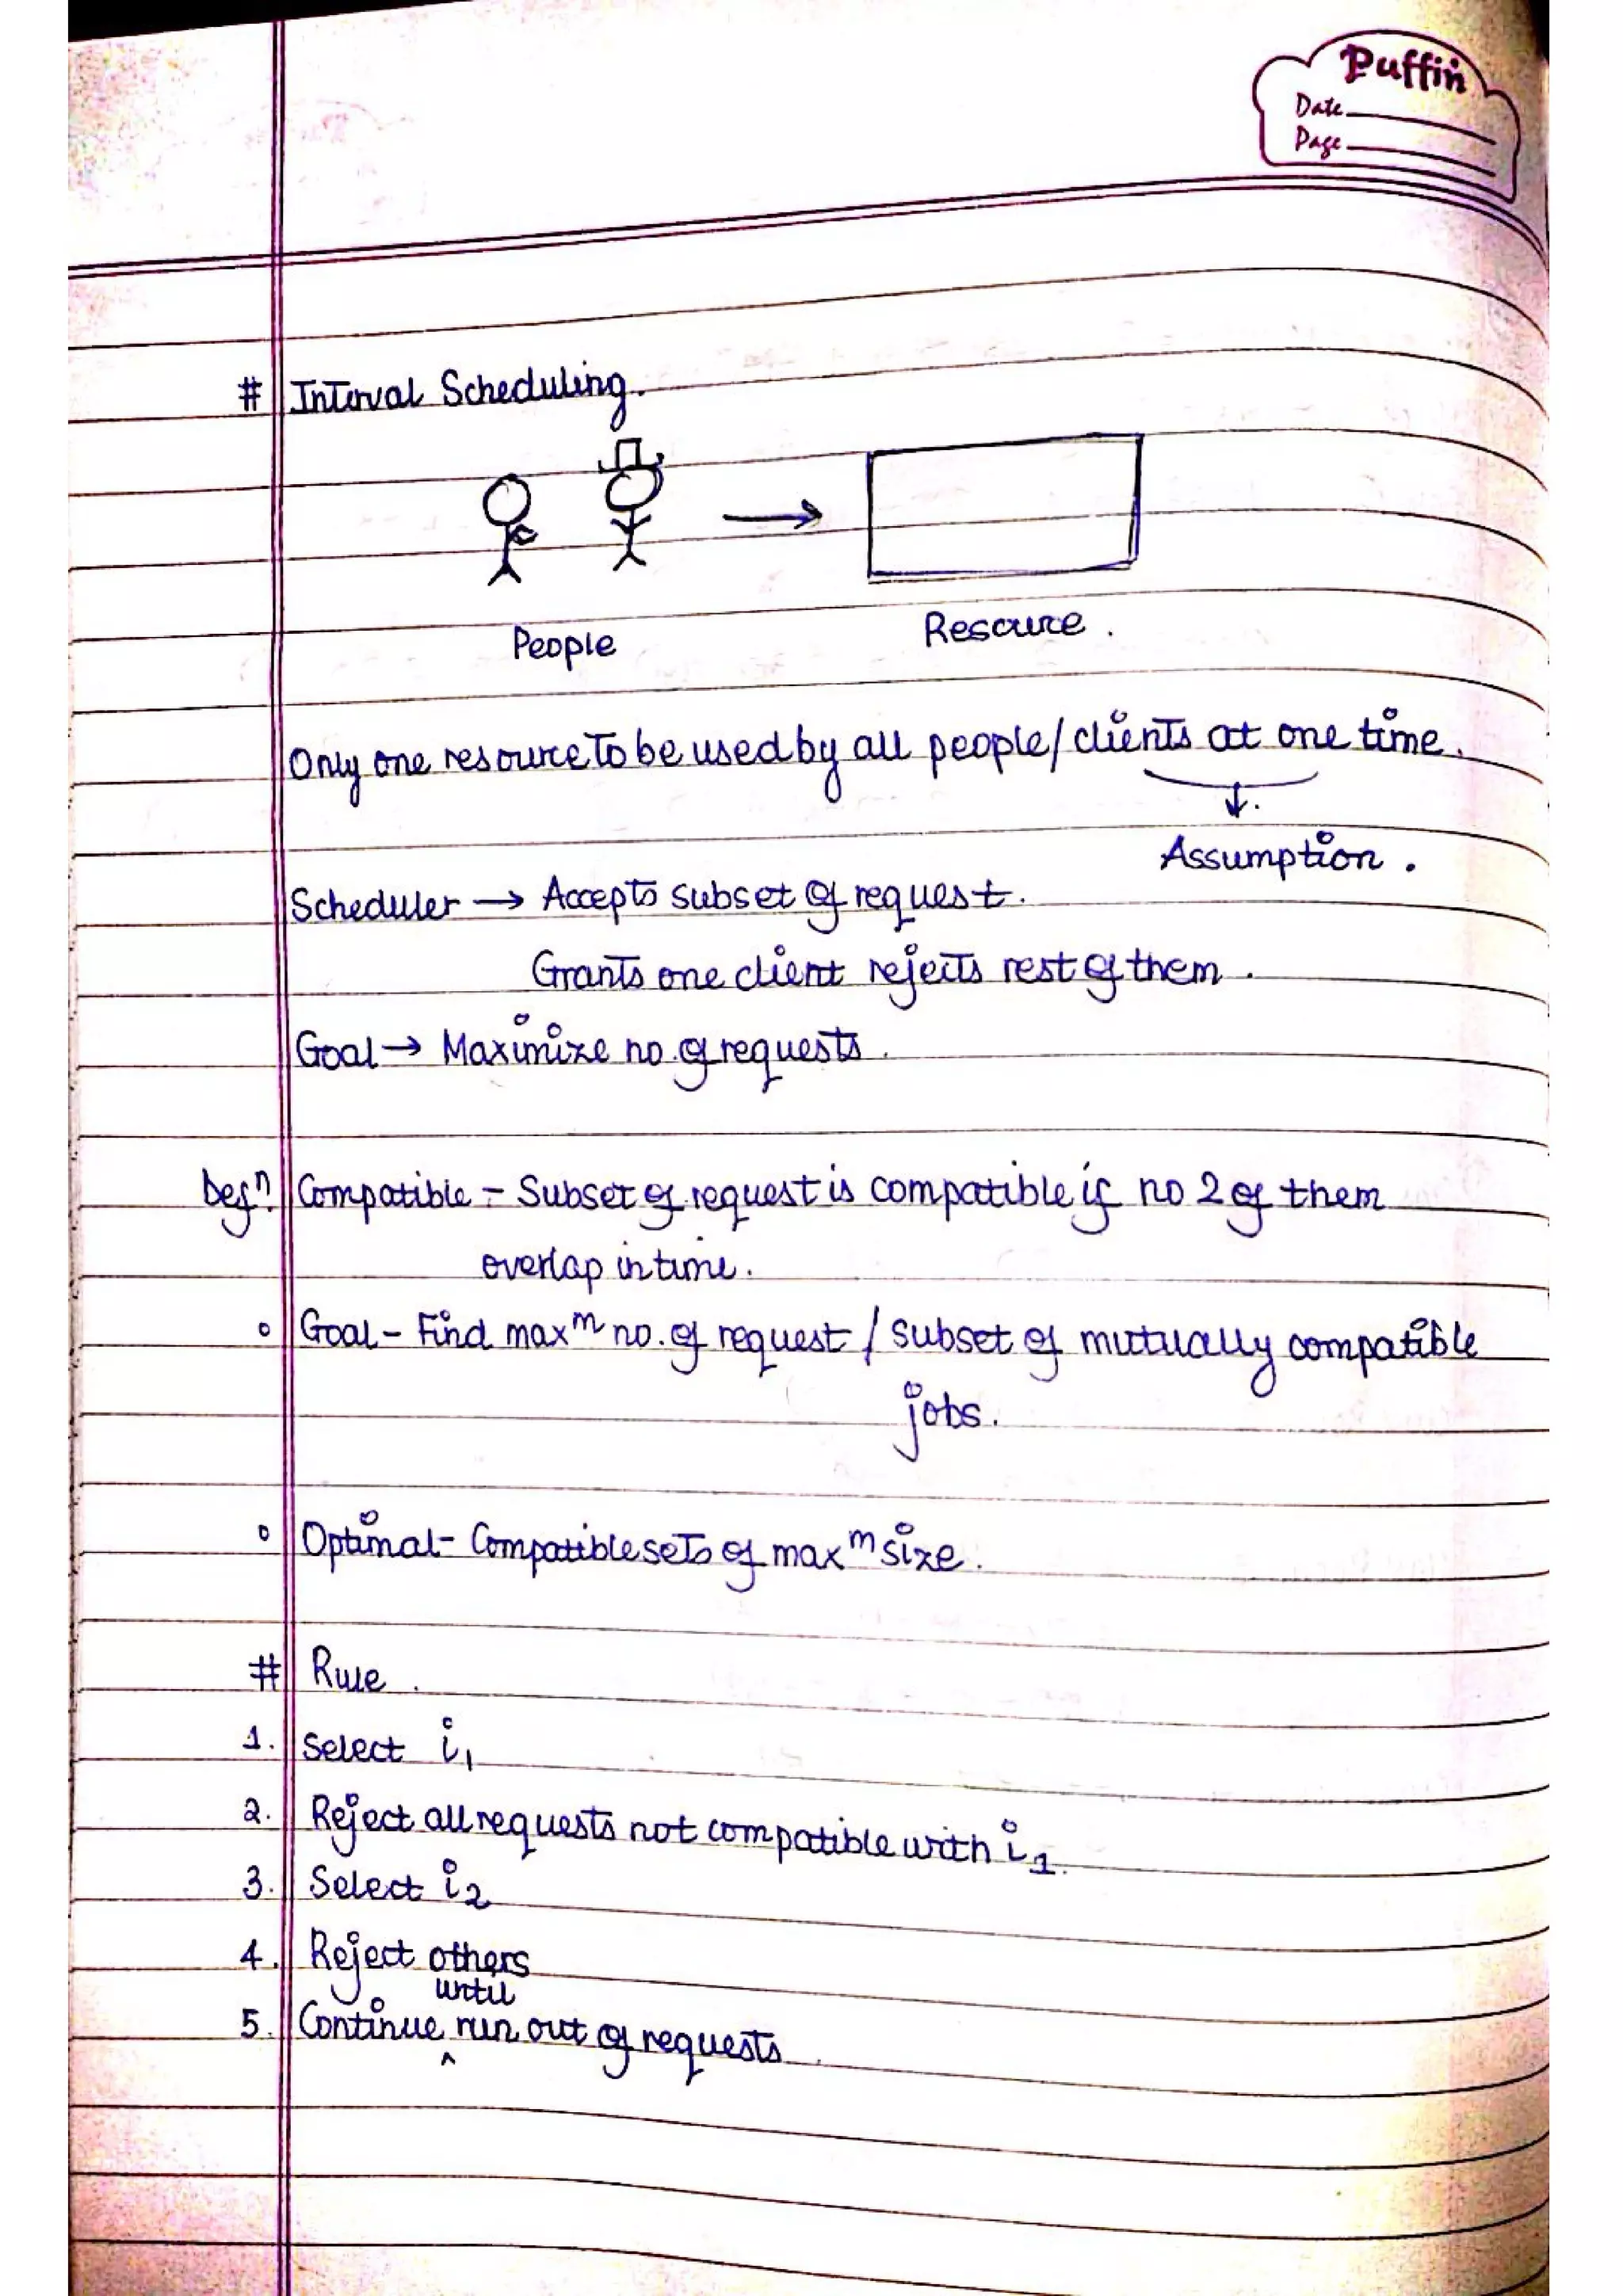 Puffin
Date
Page
# Interval Scheduling.
People
Resource.
Only one resource to be used by all people/clients at one time.
Assumption.
Scheduler → Accepts subset of request.
Grants one client rejects rest of them.
Goal → Maximize no. of requests.
Defn. Compatible - Subset of request is compatible if no 2 of them
overlap in time.
o Goal - Find maxm no. of request / subset of mutually compatible
jobs.
o Optimal - Compatible sets of maxm size.
# Rule.
1. Select i1
2. Reject all requests not compatible with i1.
3. Select i2
4. Reject others
5. Continue until run out of requests.